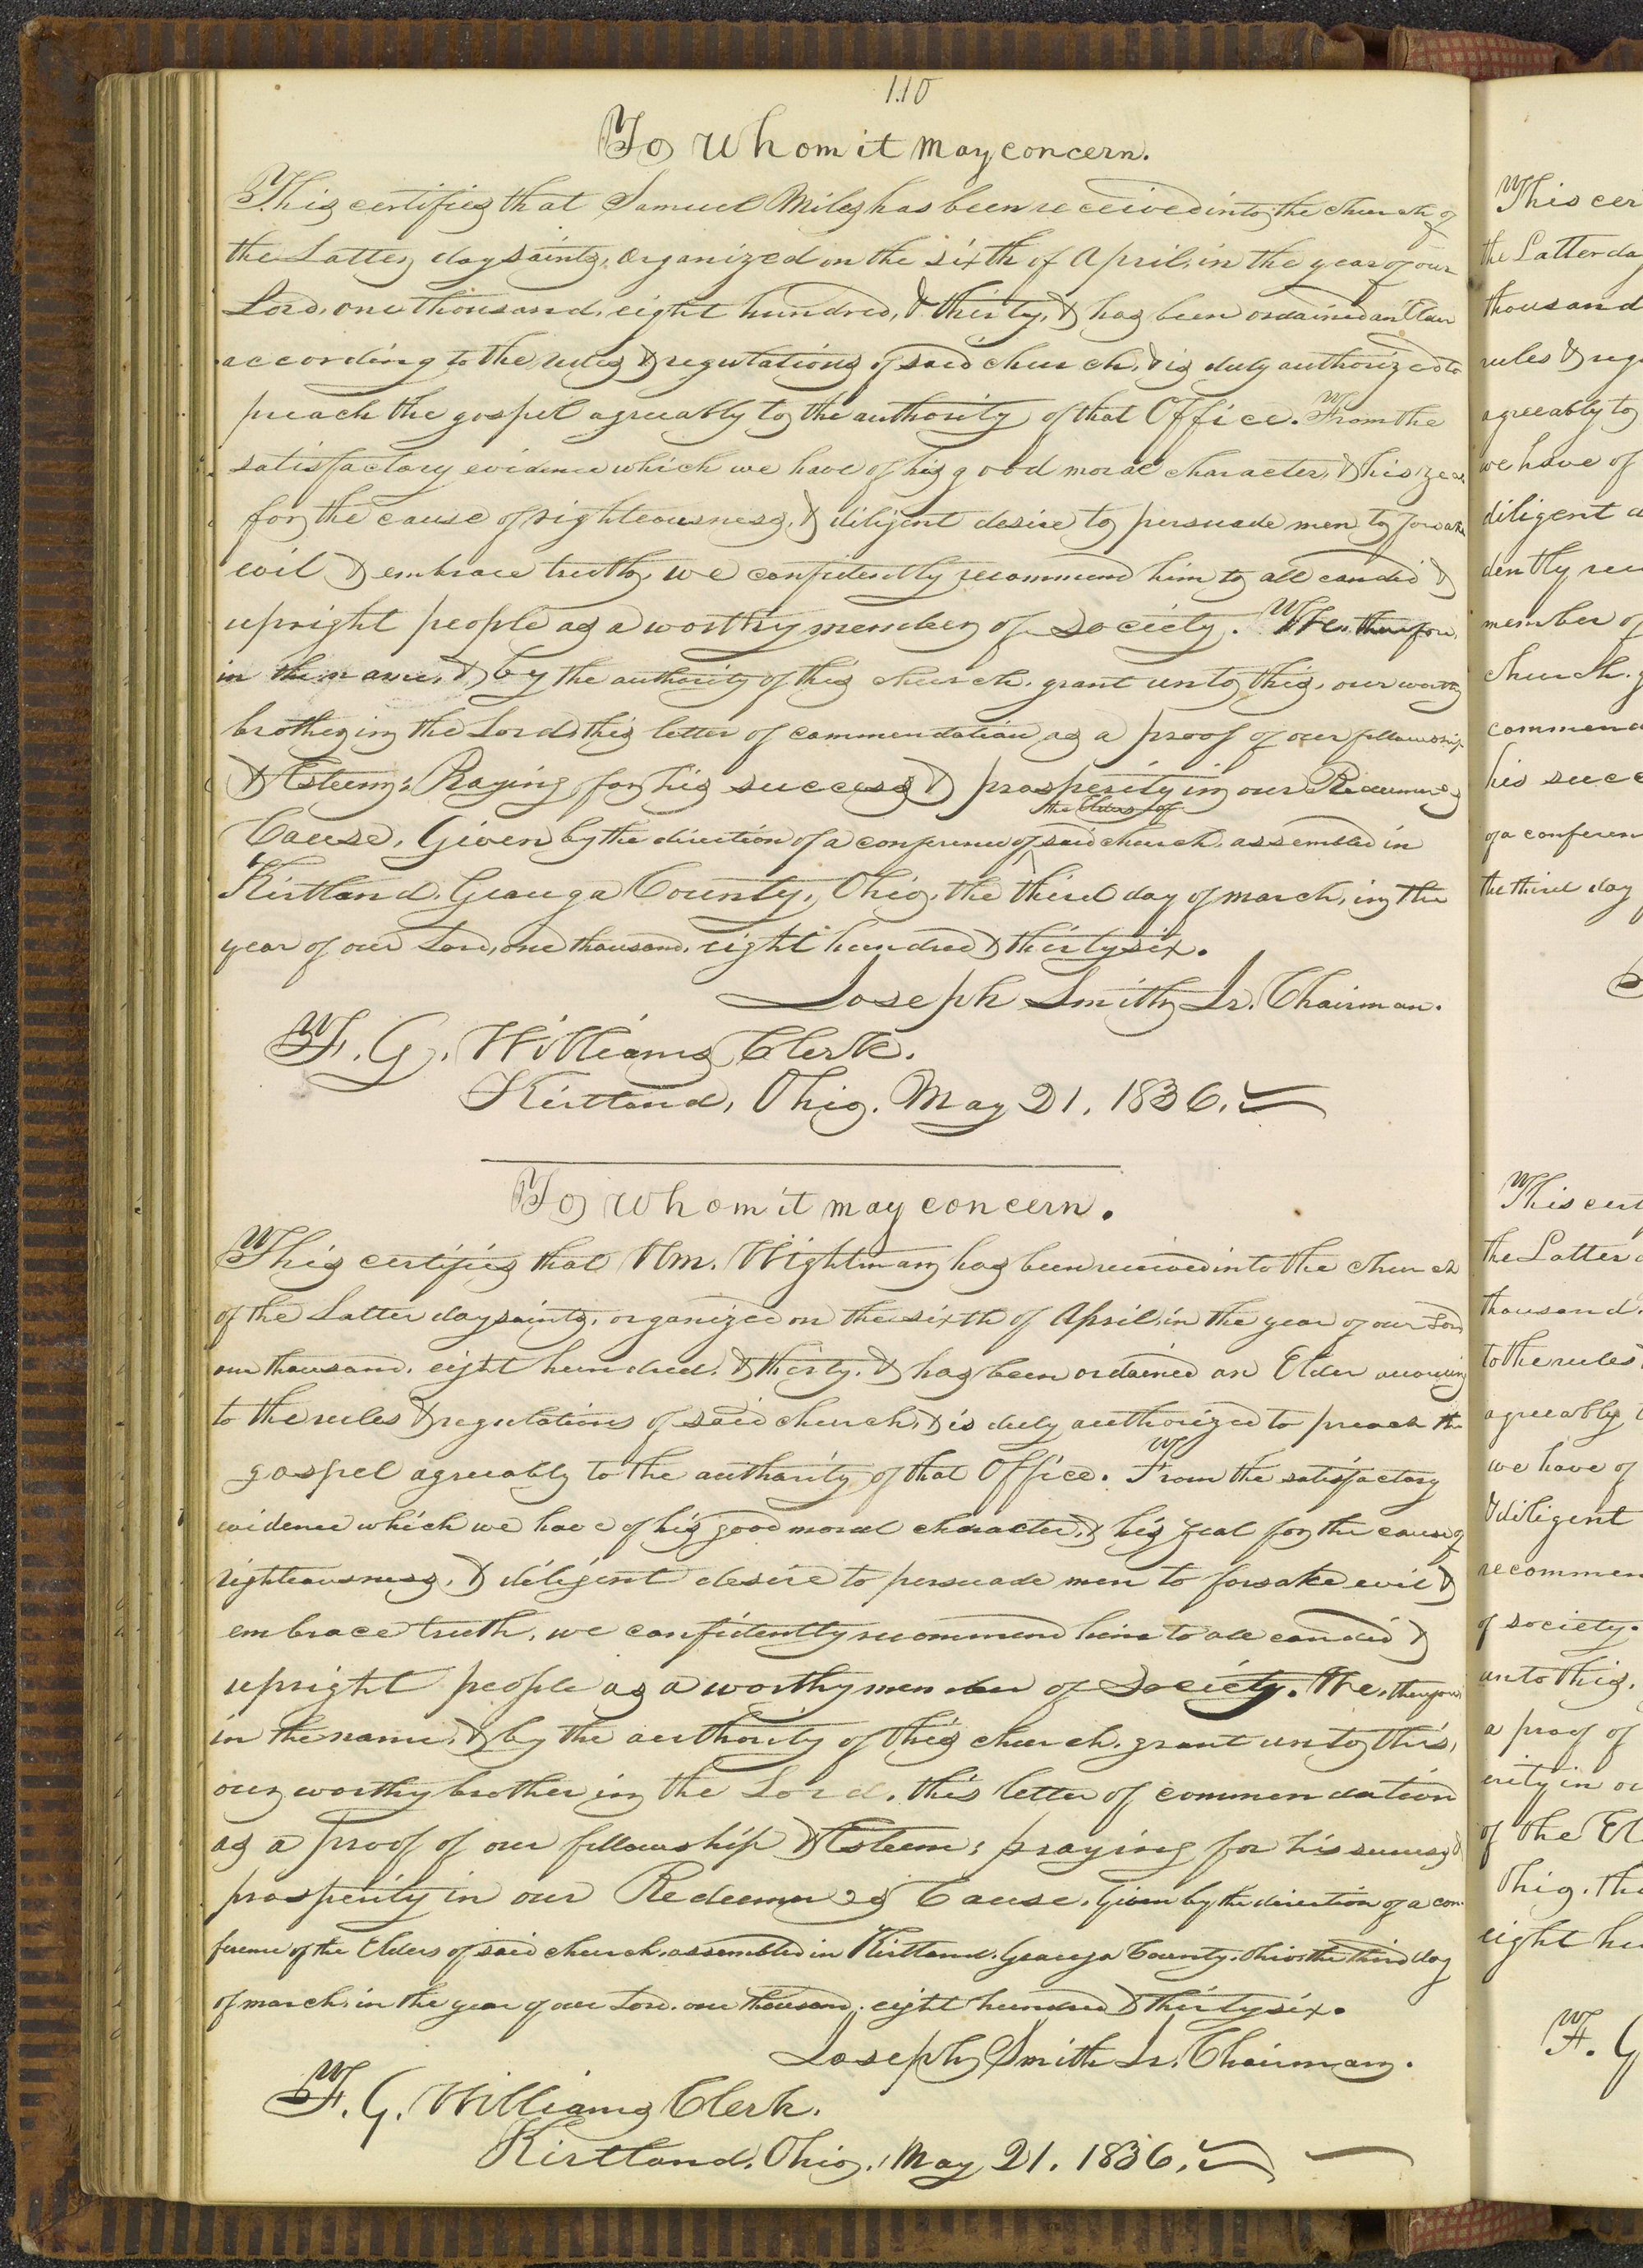 110
To whom it may concern.
This certifies that Samuel Miles has been received into the church of
the Latter day saints, organized on the sixth of April, in the year of our
Lord, one thousand, eight hundred, & thirty, & has been ordained an Elder
according to the rules & regulations of said church, & is duly authorized to
preach the gospel agreeably to the authority of that Office. From the
satisfactory evidence which we have of his good moral character, & his zeal
for the cause of righteousness, & diligent desire to persuade men to forsake
evil & embrace truth, we confidently recommend him to all candid &
upright people as a worthy member of society. We, therefore,
in the name, & by the authority of this church, grant unto this, our worthy
brother in the Lord, this letter of commendation as a proof of our fellowship
& Esteem: Praying for his success & prosperity in our Redeemer's
the Elders of
Cause. Given by the direction of a conference of said church, assembled in
Kirtland, Geauga County, Ohio, the third day of march, in the
year of our Lord, one thousand, eight hundred & thirty six.
Joseph Smith Jr. Chairman.
F. G. Williams Clerk.
Kirtland, Ohio, May 21, 1836.
To whom it may concern.
This certifies that Wm. Wightman has been received into the church
of the Latter day saints, organized on the sixth of April, in the year of our Lord
one thousand, eight hundred, & thirty, & has been ordained an Elder according
to the rules & regulations of said church, & is duly authorized to preach the
gospel agreeably to the authority of that Office. From the satisfactory
evidence which we have of his good moral character, & his zeal for the cause of
righteousness, & diligent desire to persuade men to forsake evil &
embrace truth, we confidently recommend him to all candid &
upright people as a worthy member of society. We, therefore
in the name, & by the authority of this church, grant unto this,
our worthy brother in the Lord, this letter of commendation
as a proof of our fellowship & Esteem: praying for his success &
prosperity in our Redeemer's Cause. Given by the direction of a con-
ference of the Elders of said church, assembled in Kirtland, Geauga County, Ohio the third day
of march, in the year of our Lord, one thousand, eight hundred & thirty six.
Joseph Smith Jr. Chairman.
F. G. Williams Clerk.
Kirtland, Ohio, May 21, 1836.
This cer
the Latter da
thousand
rules & reg
agreeably to
we have of
diligent d
dently rec
member of
church, g
commend
his succ
of a conferen
the third day
This cert
the Latter d
thousand,
to the rules
agreeably t
we have of
& diligent
recommen
of society.
unto this,
a proof of
erity in ou
of the El
Ohio, the
eight hu
F. G